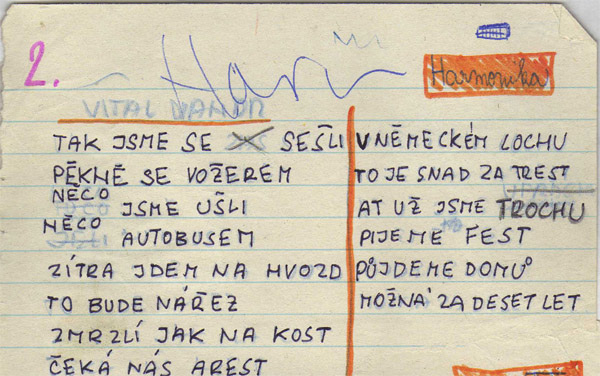 2.
Harmonika
VITAL
TAK JSME SE SEŠLI
PĚKNĚ SE VOŽEREM
NĚCO JSME UŠLI
NĚCO AUTOBUSEM
ZÍTRA JDEM NA HVOZD
TO BUDE NÁŘEZ
ZMRZLÍ JAK NA KOST
ČEKÁ NÁS AREST
V NĚMECKÉM LOCHU
TO JE SNAD ZA TREST
AT UŽ JSME TROCHU
PIJEME FEST
PŮJDEME DOMŮ
MOŽNÁ ZA DESET LET